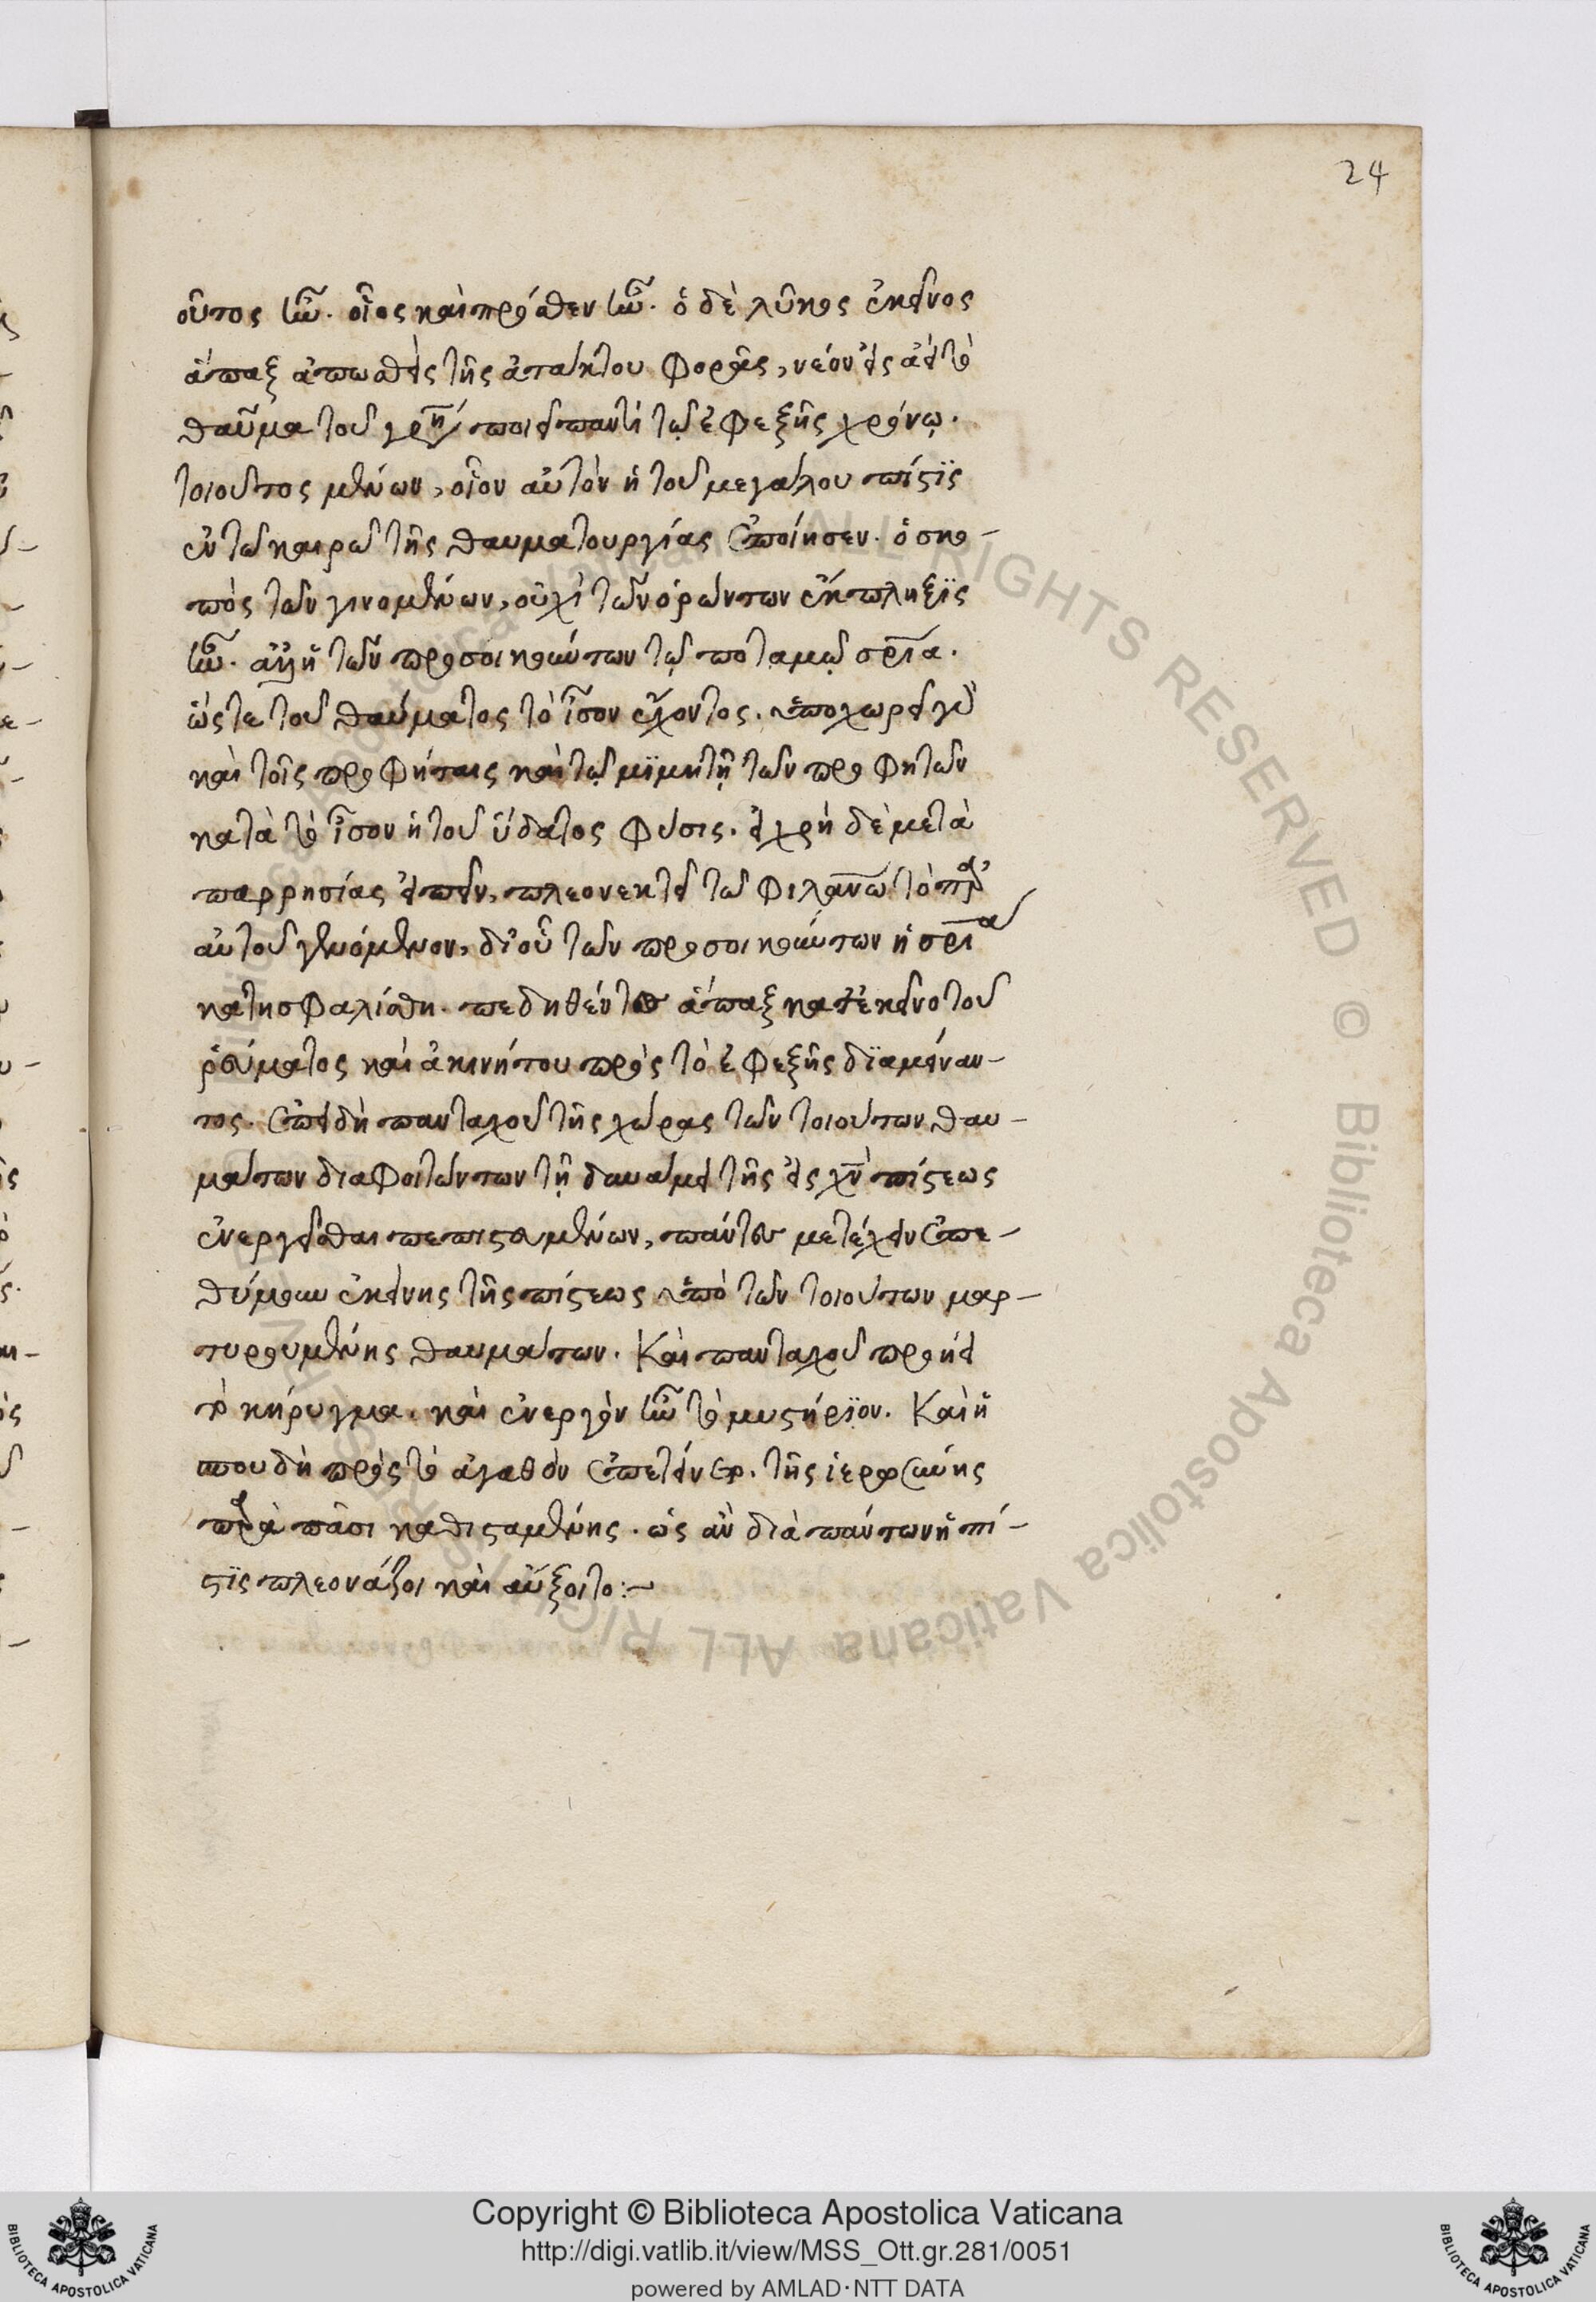 24
οὗτος ἦν. οἷος καὶ πρόσθεν ἦν. ὁ δὲ λύκος ἐκεῖνος
ἅπαξ ἀπωσθεὶς τῆς ἀτάκτου φορᾶς, νέον εἰς ἀεὶ τὸ
θαῦμα τοῦ γρη ποιεῖ παντὶ τῷ ἐφεξῆς χρόνῳ.
τοιοῦτος μένων, οἷον αὐτὸν ἡ τοῦ μεγάλου πίστϊς
ἐν τῶ καιρῶ τῆς θαυματουργίας ἐποίησεν. ὁ σκο-
πὸς τῶν γινομένων, οὐχὶ τῶν ὁρώντων ἔκπληξϊς
ἦν. ἀλλ' ἡ τῶν προσοικούντων τῷ ποταμῷ σρία.
ὥστε τοῦ θαύματος τὸ ἶσον ἔχοντος. ὑποχωρεῖ γὰρ
καὶ τοῖς προφήταις καὶ τῷ μϊμητῇ τῶν προφητῶν
κατὰ τὸ ἶσον ἡ τοῦ ὕδατος φύσις. εἰ χρὴ δὲ μετὰ
παρρησίας εἰπεῖν, πλεονεκτεῖ τῶ φιλανω τὸ παρ'
αὐτοῦ γενόμενον, δι' οὗ τῶν προσοικούντων ἡ σρια
κατησφαλίσθη. πεδηθέντος ἅπαξ κατ' ἐκεῖνο τοῦ
ῥεύματος καὶ ἀκινήτου πρὸς τὸ ἐφεξῆς δϊαμείναν-
τος. ἐπειδὴ πανταχοῦ τῆς χώρας τῶν τοιούτων θαυ-
μάτων διαφοιτώντων τῇ δυνάμει τῆς εἰς χν πίστεως
ἐνεργεῖσθαι πεπιστευμένων, πάντες μετέχειν ἐπε-
θύμουν ἐκείνης τῆς πίστεως ὑπὸ τῶν τοιούτων μαρ-
τυρουμένης θαυμάτων. Καὶ πανταχοῦ προήει
τὸ κήρυγμα. καὶ ἐνεργὸν ἦν τὸ μυστήρϊον. Καὶ ἡ
σπουδὴ πρὸς τὸ ἀγαθὸν ἐπετείνετο. τῆς ἱερωσύνης
παρὰ πᾶσι καθισταμένης. ὡς ἂν διὰ πάντων ἡ πί-
στϊς πλεονάζοι καὶ αὔξοιτο:-
Copyright © Biblioteca Apostolica Vaticana
http://digi.vatlib.it/view/MSS_Ott.gr.281/0051
powered by AMLAD·NTT DATA
BIBLIOTECA APOSTOLICA VATICANA
BIBLIOTECA APOSTOLICA VATICANA